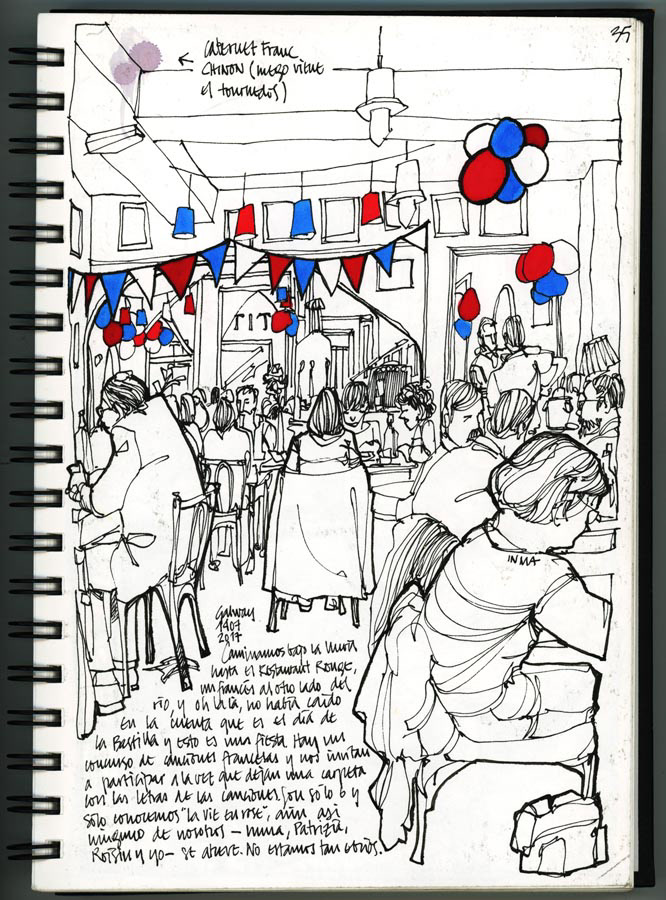 35
CABERNET FRANC
CHINON (luego viene
el tournedos)
TIT
INMA
Galway
1407
2017
Caminamos bajo la lluvia
hasta el Restaurant Rouge,
un francés al otro lado del
río, y oh la la, no había caído
en la cuenta que es el día de
la Bastilla y esto es una fiesta. Hay un
concurso de canciones francesas y nos invitan
a participar a la vez que dejan una carpeta
con las letras de las canciones. Son solo 6 y
sólo conocemos "la vie en rose", aún así
ninguno de nosotros – Inma, Patrizia,
Roisin y yo – se atreve. No estamos tan